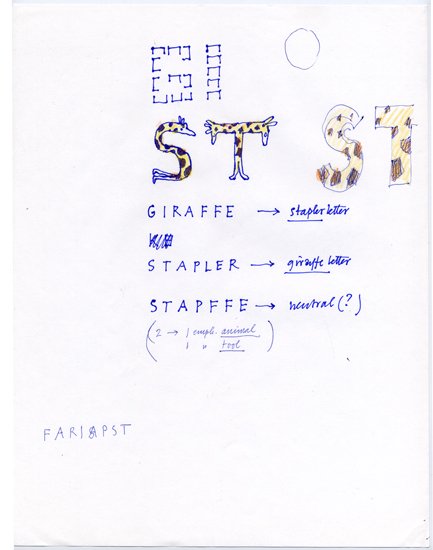 ST ST
GIRAFFE → stapler letter
STAPLER → giraffe letter
STAPFFE → neutral (?)
(2 → 1 emph. animal
1 " tool)
FARIAPST